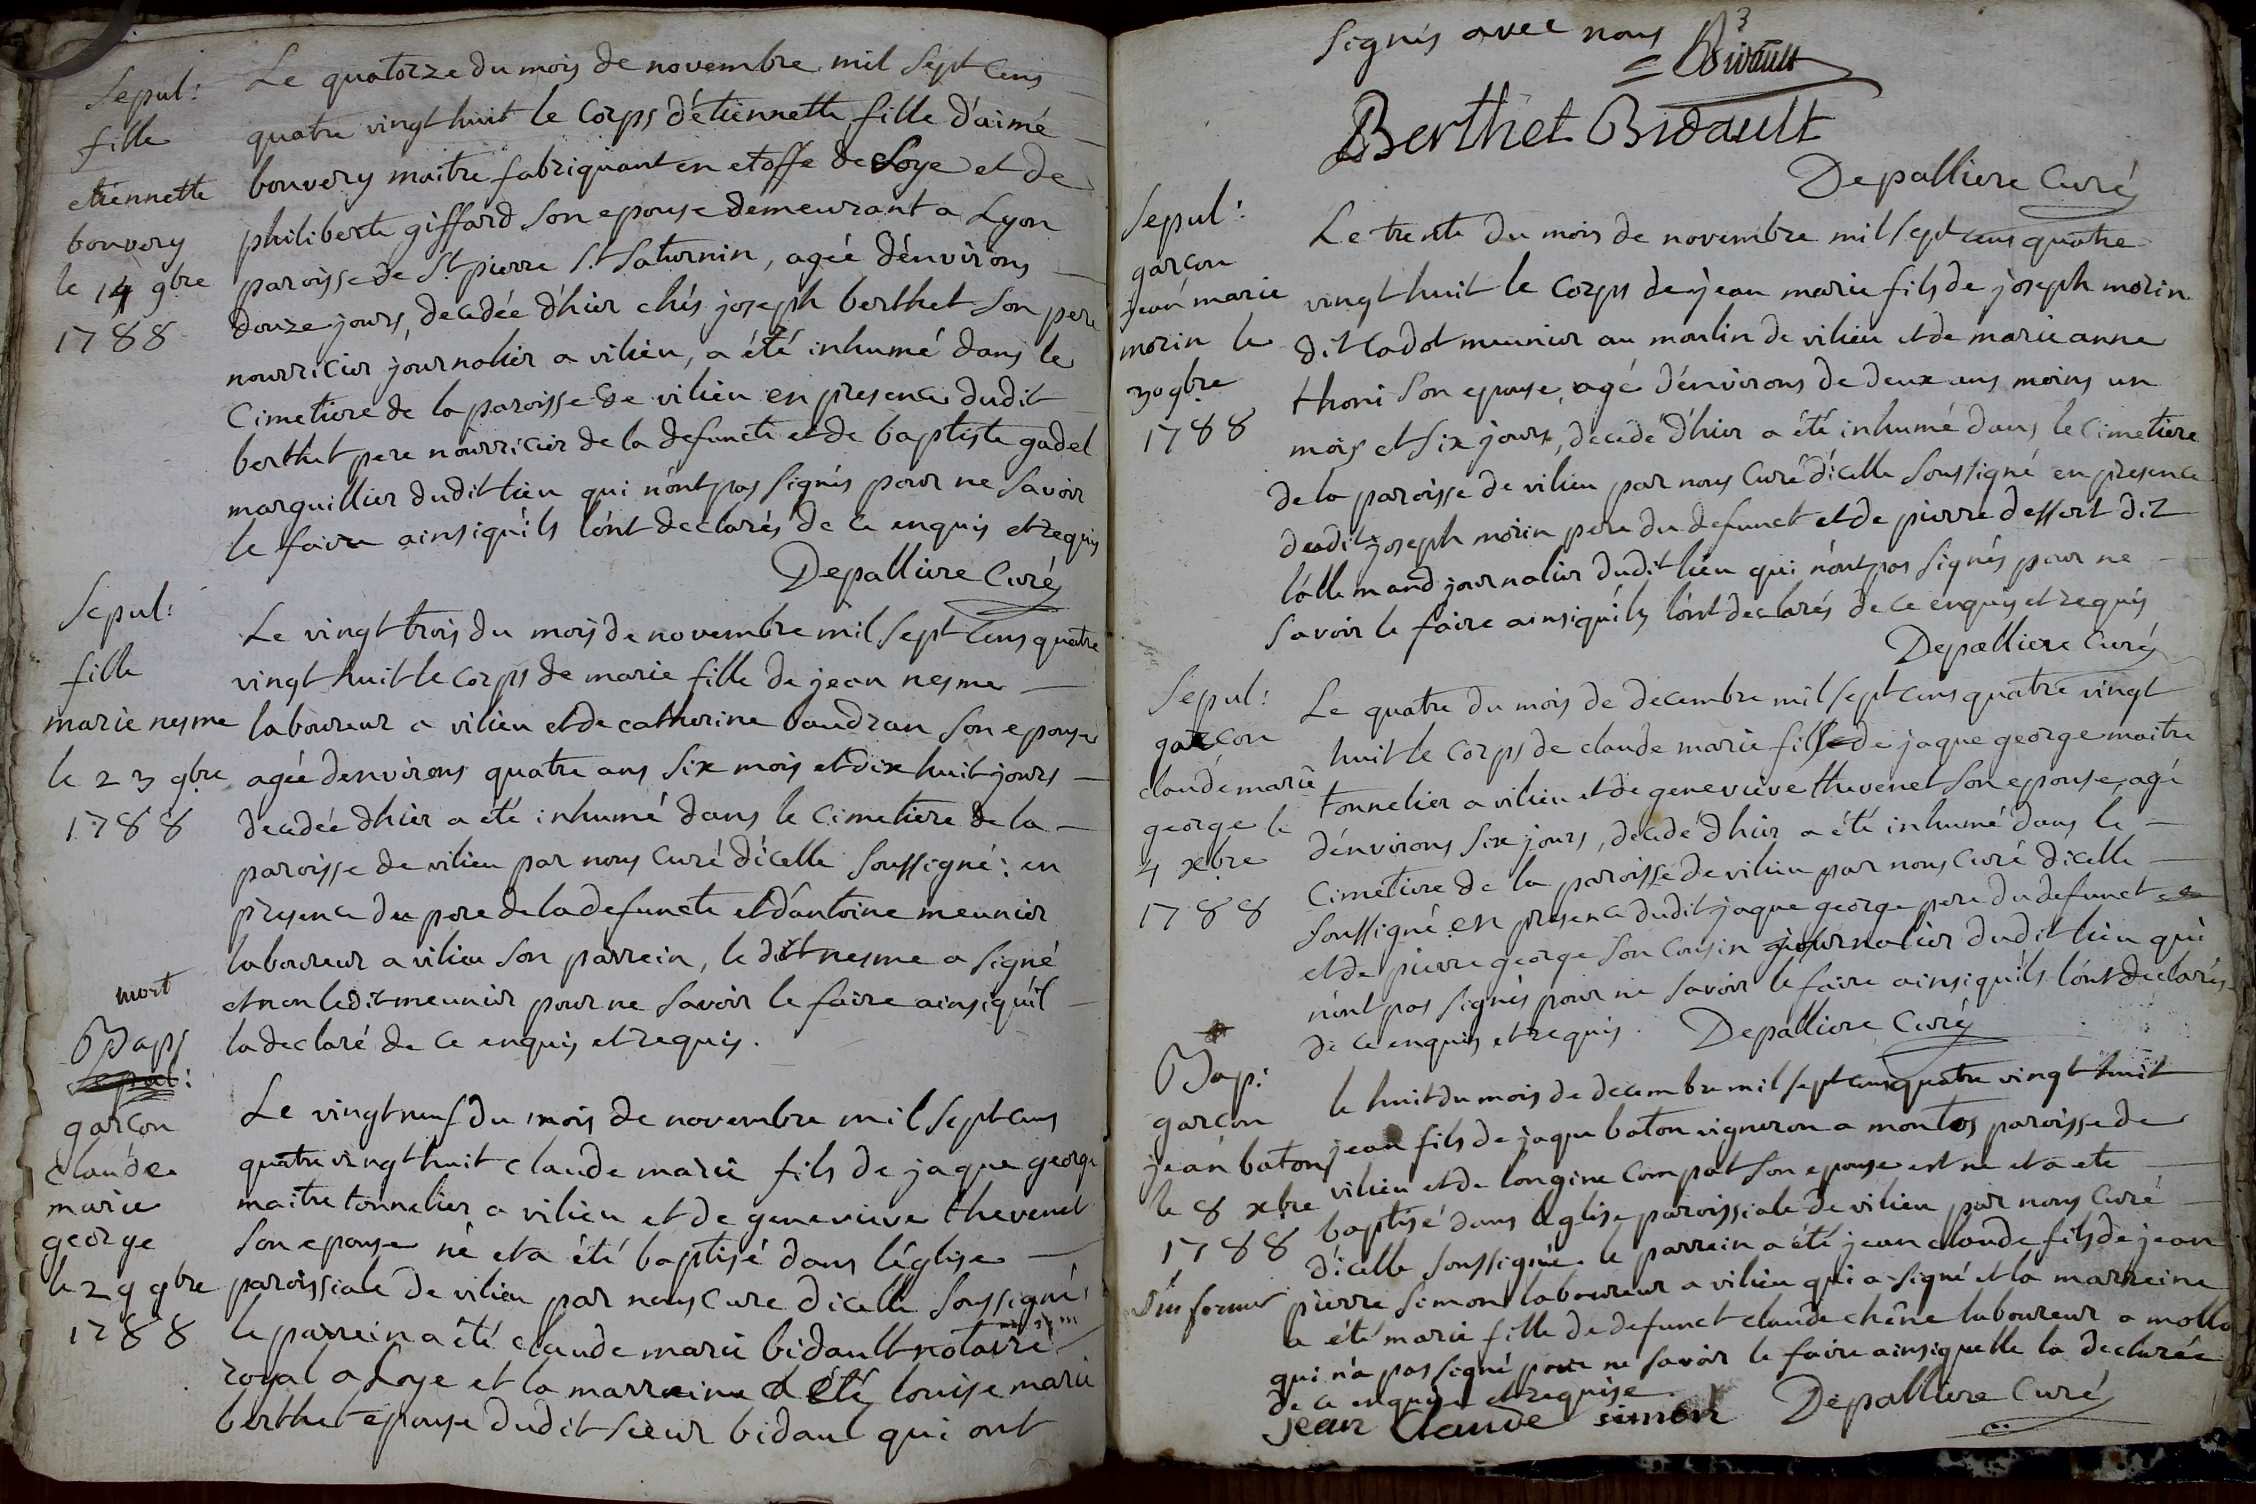 Sepul:
fille
etiennette
bouvery
le 14 9bre
1788
Le quatorze du mois de novembre mil Sept Cens
quatre vingt huit le Corps d'étiennette fille d'aimé
bouvery maitre fabriquant en etoffe de Soye et de
philiberte giffard Son epouse demeurant a Lyon
paroisse de St. pierre St. Saturnin, agéé d'environs
douze jours, decedée d'hier chés joseph berthet Son pere
nourricier journalier a vilieu, a été inhumé dans le
Cimetiere de la paroisse de vilieu en presence dudit
berthet pere nourricier de la defuncte et de baptiste gadel
marguillier dudit lieu qui n'ont pas signés pour ne Savoir
le faire ainsi qu'ils l'ont declarés de ce enquis et requis
Depalliere Curé
Sepul:
fille
marie nesme
le 23 9bre
1788
Le vingt trois du mois de novembre mil Sept Cens quatre
vingt huit le Corps de marie fille de jean nesme
laboureur a vilieu et de catherine baudran Son epouse
agée d'environs quatre ans Six mois et dix huit jours
decedée d'hier a été inhumé dans le Cimetiere de la
paroisse de vilieu par nous Curé d'icelle Soussigné: en
presence du pere de la defuncte et d'antoine meunier
laboureur a vilieu Son parrein, le dit nesme a Signé
et non le dit meunier pour ne Savoir le faire ainsi qu'il
la declaré de ce enquis et requis.
mort
Bap
Sepul:
garçon
claude
marie
george
le 29 9bre
1788
Le vingt neuf du mois de novembre mil Sept Cens
quatre vingt huit claude marie fils de jaque george
maitre tonnelier a vilieu et de genevieve thevenet
Son epouse né et a été baptisé dans l'église
paroissiale de vilieu par nous Cure d'icelle Soussigné
le parrein a été claude marie bidault notaire
royal a Loye et la marreine a été louise marie
berthet epouse dudit Sieur bidault qui ont
Signés avec nous
Bidault
Berthet Bidault
Depalliere Curé
Sepul:
garçon
jean marie
morin le
30 9bre
1788
Le trente du mois de novembre mil Sept cens quatre
vingt huit le Corps de jean marie fils de joseph morin
dit Cadot meunier au moulin de vilieu et de marie anne
thoni Son epouse, agé d'environs de deux ans moins un
mois et Six jours, decedé d'hier a été inhumé dans le Cimetiere
de la paroisse de vilieu par nous Curé d'icelle Soussigné en presence
dudit joseph morin pere du defunct et de pierre dessert dit
l'allemand journalier dudit lieu qui n'ont pas Signés pour ne
Savoir le faire ainsi qu'ils l'ont declarés de ce enquis et requis
Depalliere Curé
Sepul:
garçon
claude marie
george le
4 xbre
1788
Le quatre du mois de decembre mil Sept cens quatre vingt
huit le Corps de claude marie fils de jaque george maitre
tonnelier a vilieu et de genevieve thevenet Son epouse, agé
d'environs Six jours, decedé d'hier a été inhumé dans le
Cimetiere de la paroisse de vilieu par nous Curé d'icelle
Soussigné en presence dudit jaque george pere du defunct
et de pierre george Son Cousin journalier dudit lieu qui
n'ont pas Signés pour ne Savoir le faire ainsi qu'ils l'ont declarés
de ce enquis et requis. Depalliere Curé
Bap:
garçon
jean baton
le 8 xbre
1788
S'informer
le huit du mois de decembre mil Sept cens quatre vingt huit
jean fils de jaque baton vigneron a montos paroisse de
vilieu et de longine Compat Son epouse est né et a ete
baptisé dans l'eglise paroissiale de vilieu par nous Curé
d'icelle Soussigné. le parrein a été jean claude fils de jean
pierre Simon laboureur a vilieu qui a signé et la marreine
a été marie fille de defunct claude chêne laboureur a mollo
qui n'a pas Signé pour ne Savoir le faire ainsi quelle la declarée
de ce enquise et requise.
jean Claude simon Depalliere Curé